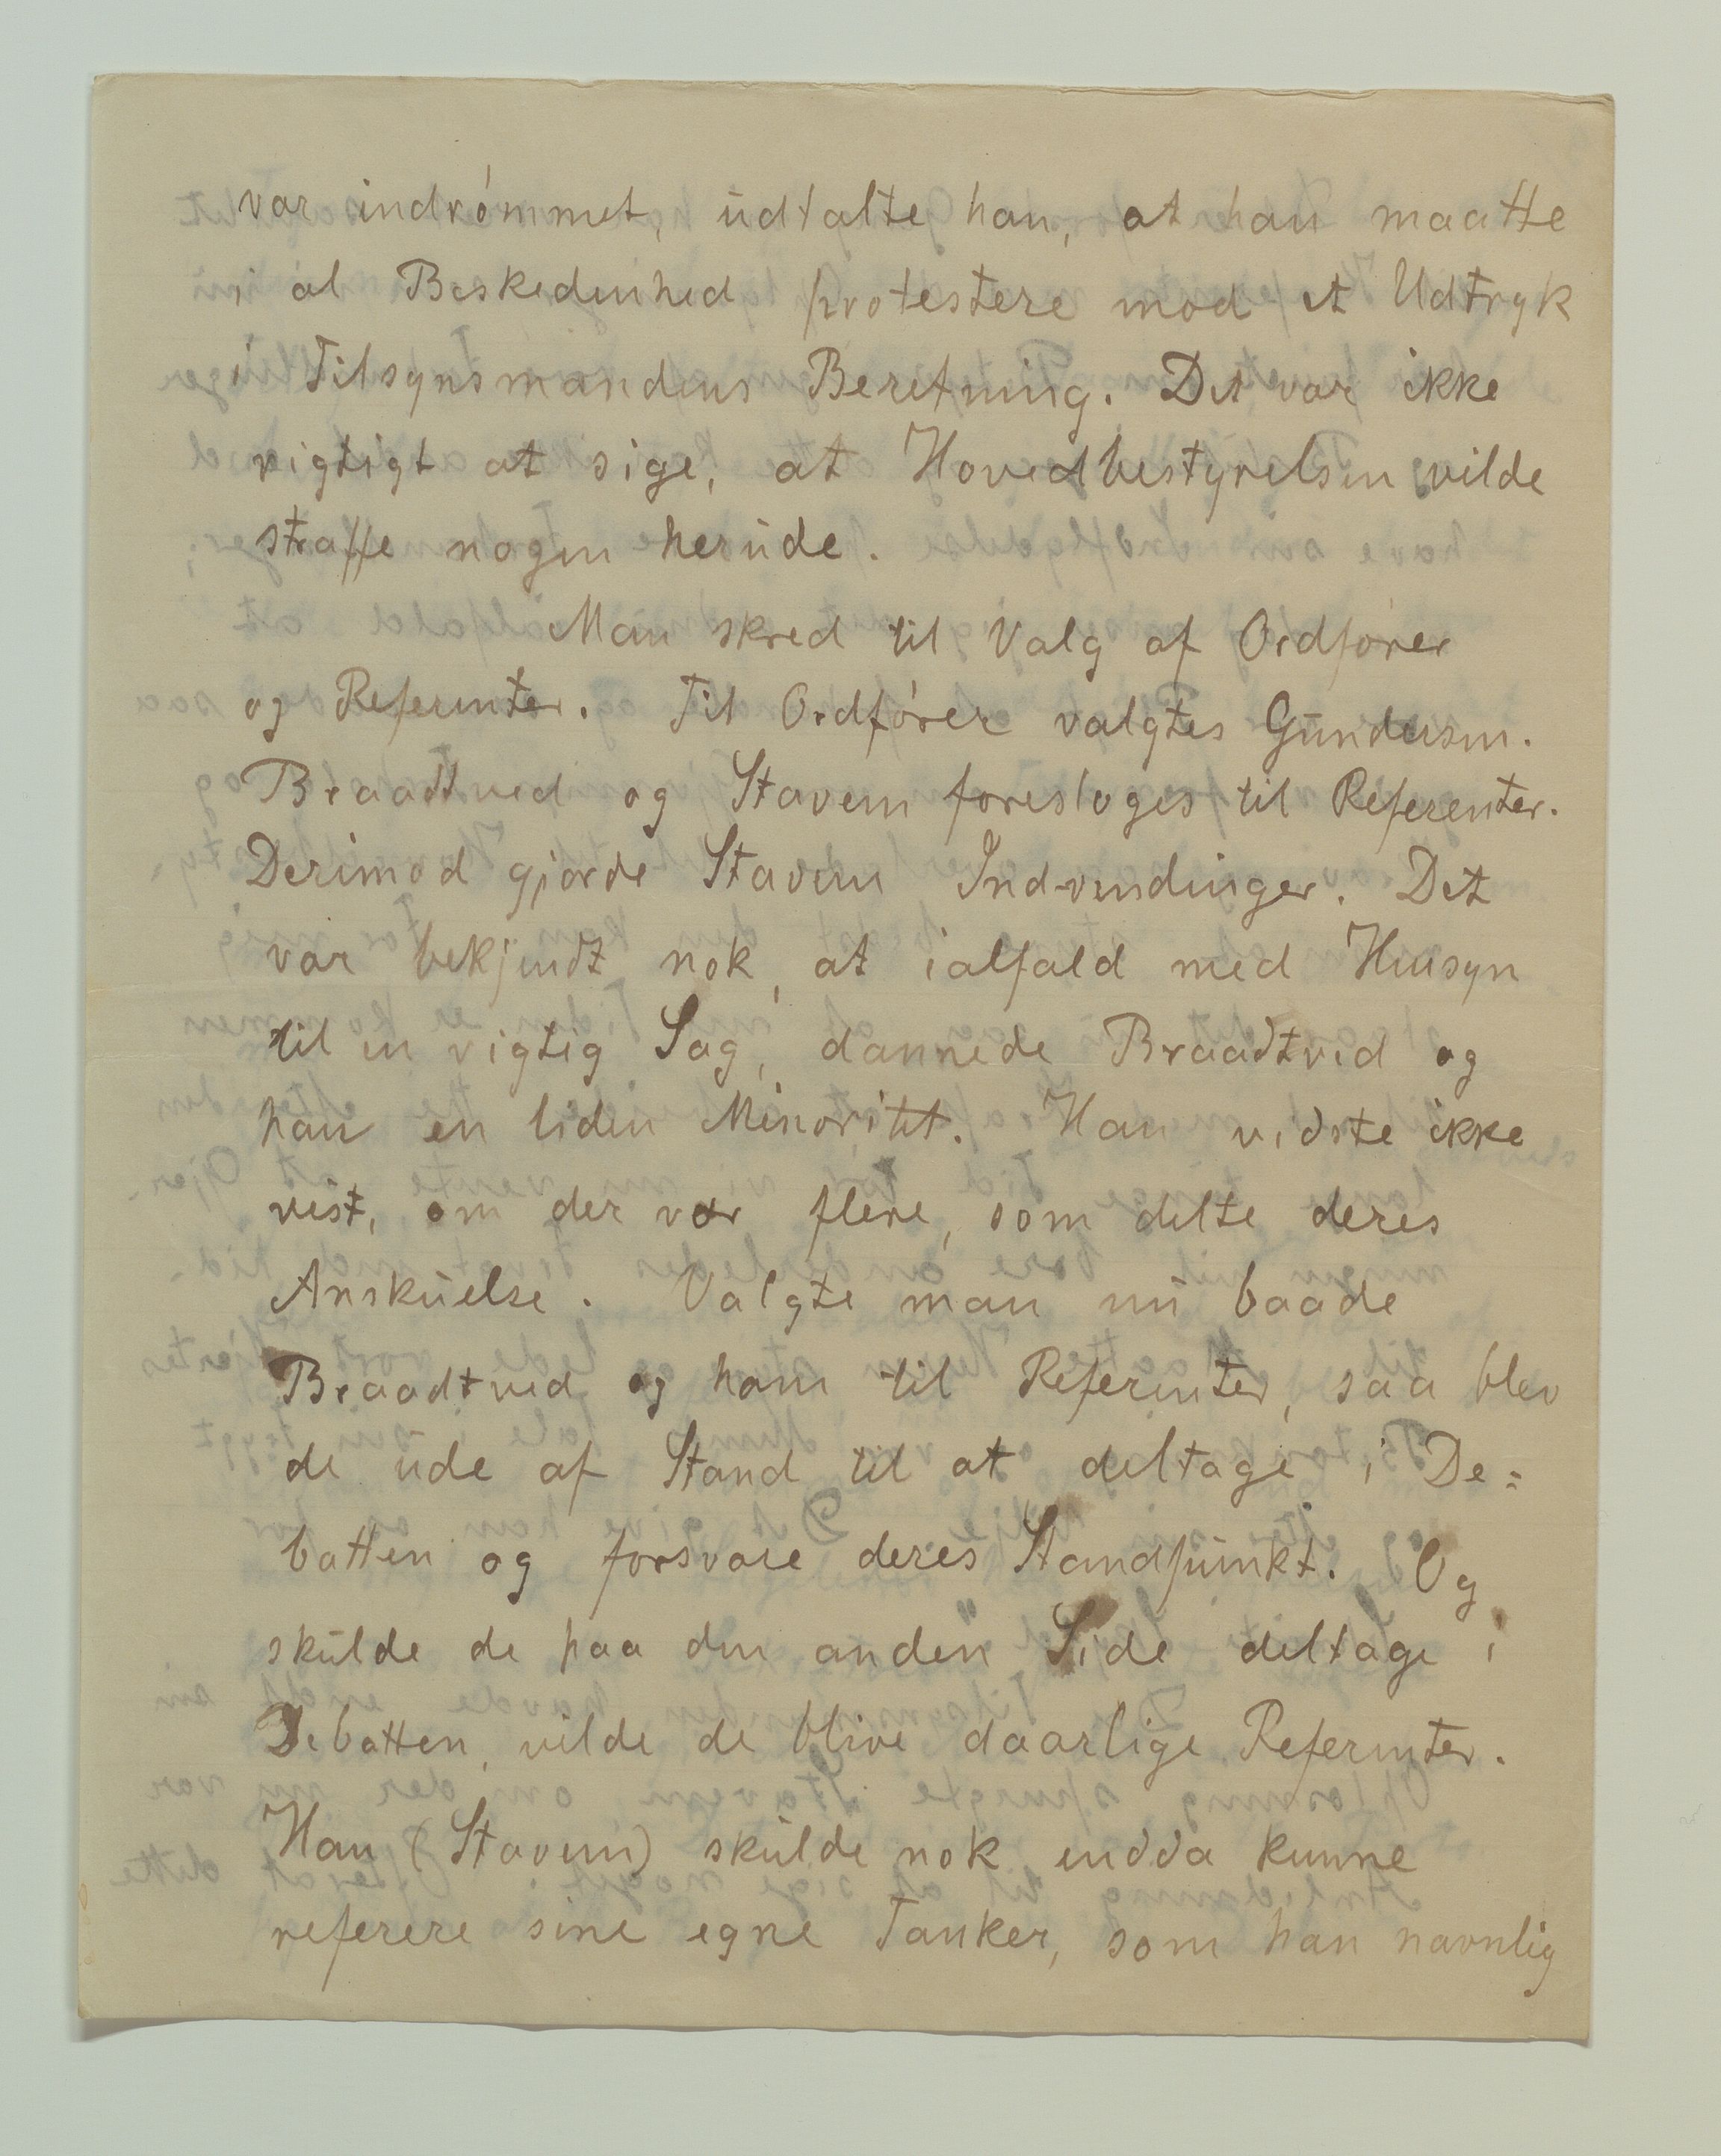 var indrømmet, udtalte han, at han maatte
i al Beskedenhed protestere mod et Udtryk
i Tilsynsmandens Beretning. Det var ikke
rigtigt at sige, at Hovedbestyrelsen vilde
straffe nogen herude.
Man skred til Valg af Ordfører
og Referenter. Til Ordfører valgtes Gundersen.
Braadtved og Stavem foresloges til Referenter.
Derimod gjorde Stavem Indvendinger. Det
var bekjendt nok, at ialfald med Hensyn
til en vigtig Sag, dannede Braadtved og
han en liden Minoritet. Han vidste ikke
vist, om der var flere, som delte deres
Anskuelse. Valgte man nu baade
Braadtved og ham til Referenter, saa blev
de ude af Stand til at deltage i De=
batten og forsvare deres Standpunkt. Og
skulde de paa den anden Side deltage i
Debatten, vilde de blive daarlige Referenter.
Han (Stavem) skulde nok endda kunne
referere sine egne Tanker, som han navnlig